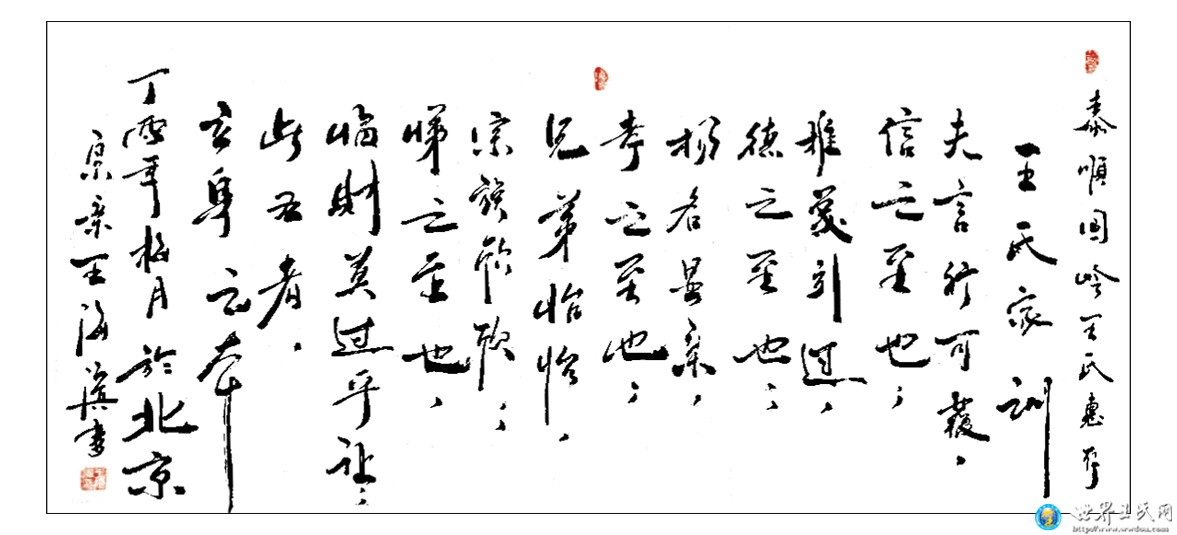 泰順周岭王氏惠存
王氏家訓
夫言行可覆,
信之至也;
推美引过,
德之至也;
揚名显親,
孝之至也;
兄弟怡怡,
宗族欣欣;
悌之至也,
臨財莫过乎让;
此五者,
立身之本
丁酉年梅月於北京
亲王海滨书
世界王氏网